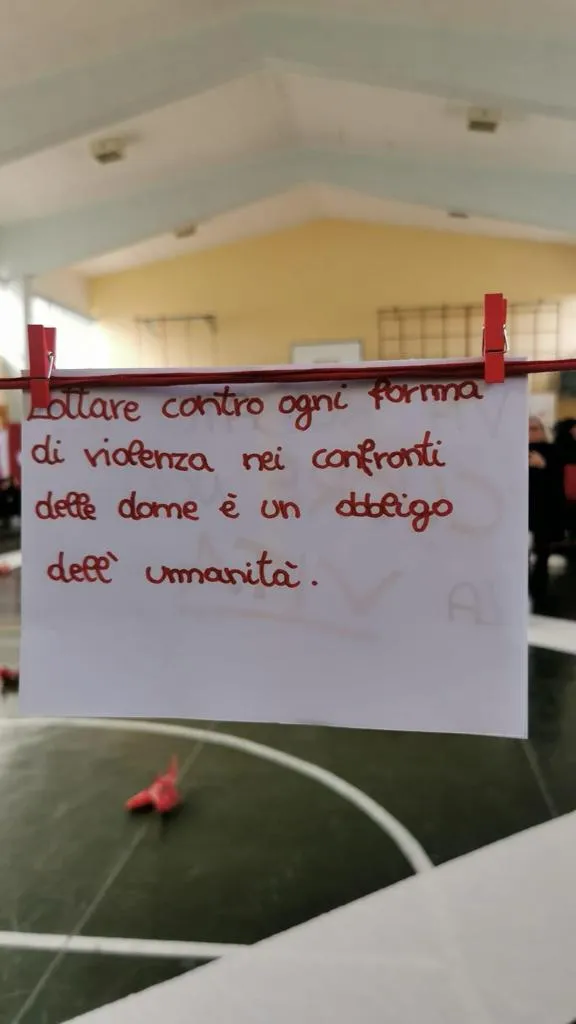 Lottare contro ogni forma
di violenza nei confronti
delle donne è un obbligo
dell' umanità.